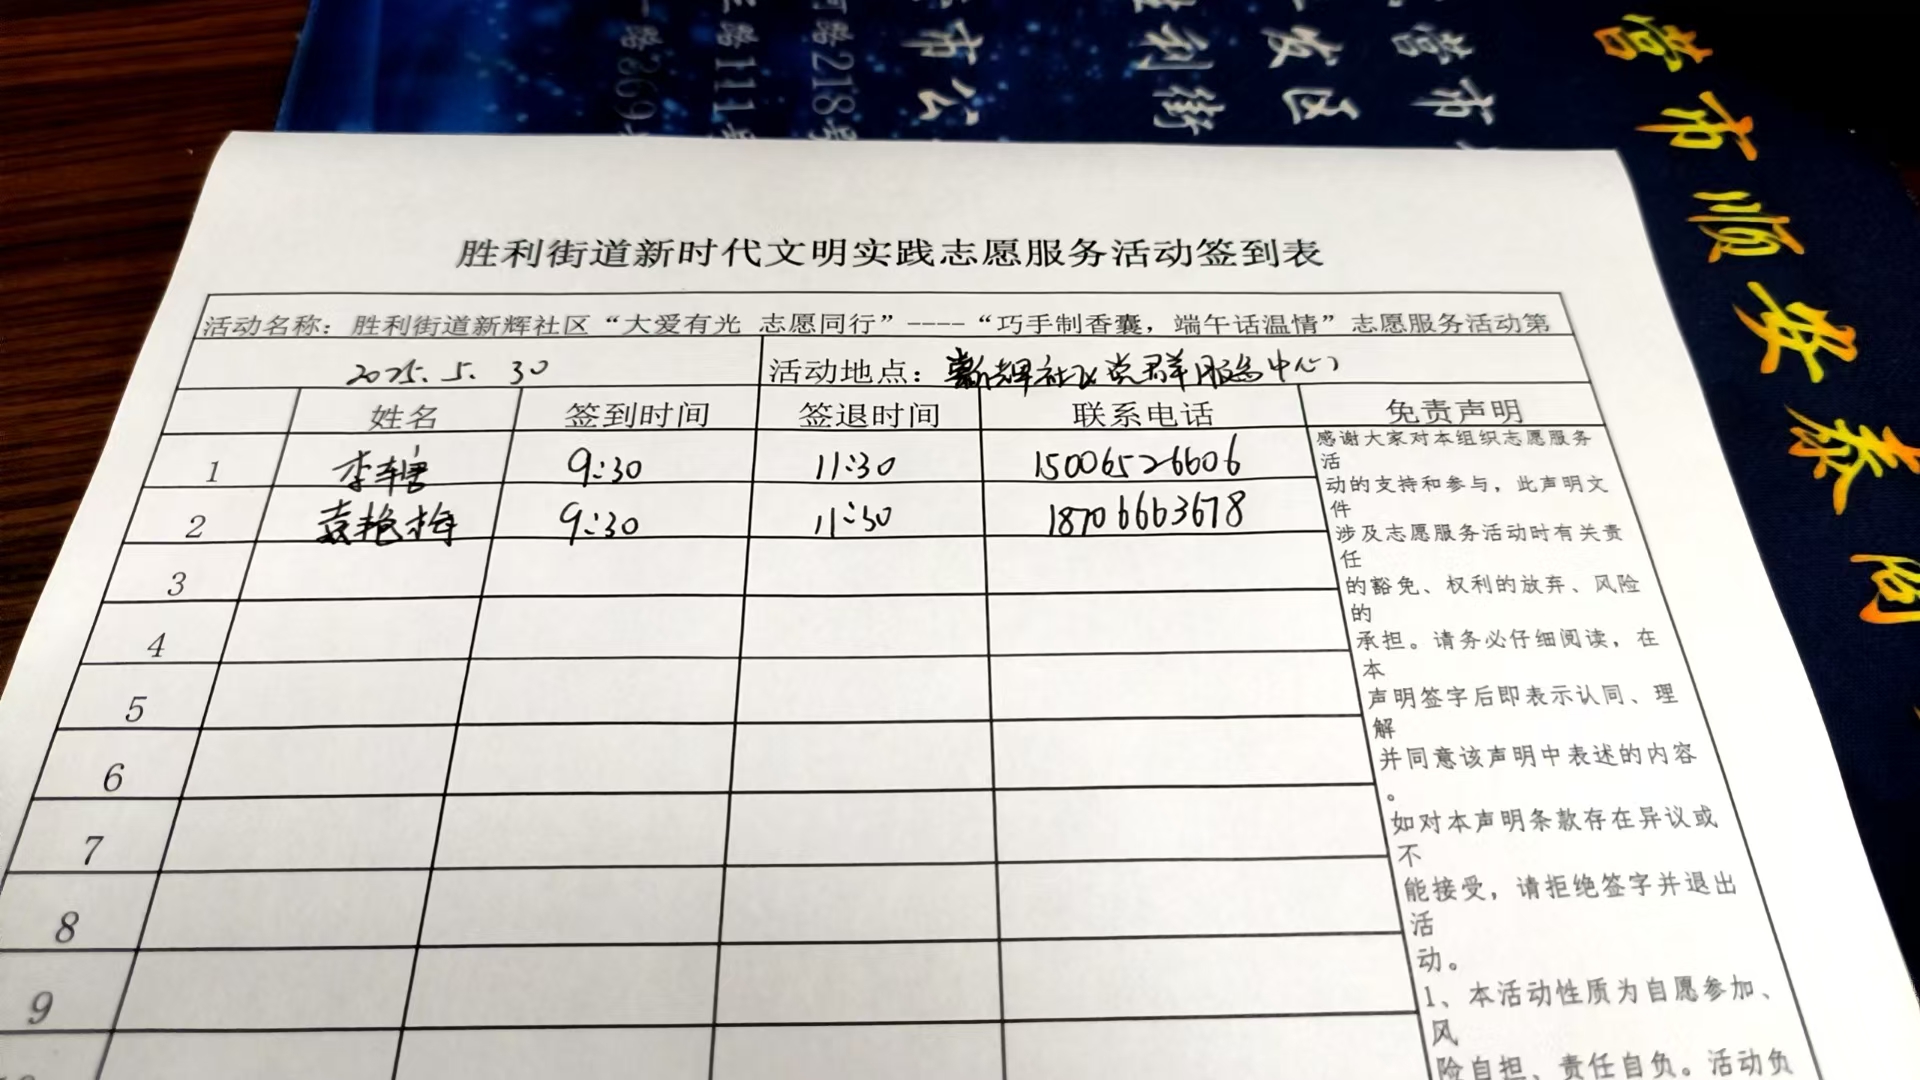 胜利街道新时代文明实践志愿服务活动签到表
活动名称：胜利街道新辉社区“大爱有光 志愿同行”----“巧手制香囊，端午话温情”志愿服务活动第
2025.5.30 活动地点：新辉社区党群服务中心
姓名 签到时间 签退时间 联系电话 免责声明
1 李 9:30 11:30 15006526606
2 袁艳梅 9:30 11:30 18706663678
3
4
5
6
7
8
9
10
感谢大家对本组织志愿服务
活
动的支持和参与，此声明文
件
涉及志愿服务活动时有关责
任
的豁免、权利的放弃、风险
的
承担。请务必仔细阅读，在
本
声明签字后即表示认同、理
解
并同意该声明中表述的内容
。
如对本声明条款存在异议或
不
能接受，请拒绝签字并退出
活
动。
1、本活动性质为自愿参加、
风
险自担、责任自负。活动负
营市顺安泰阁
营市
发区
利街
市公
路218号
路111号
路369号